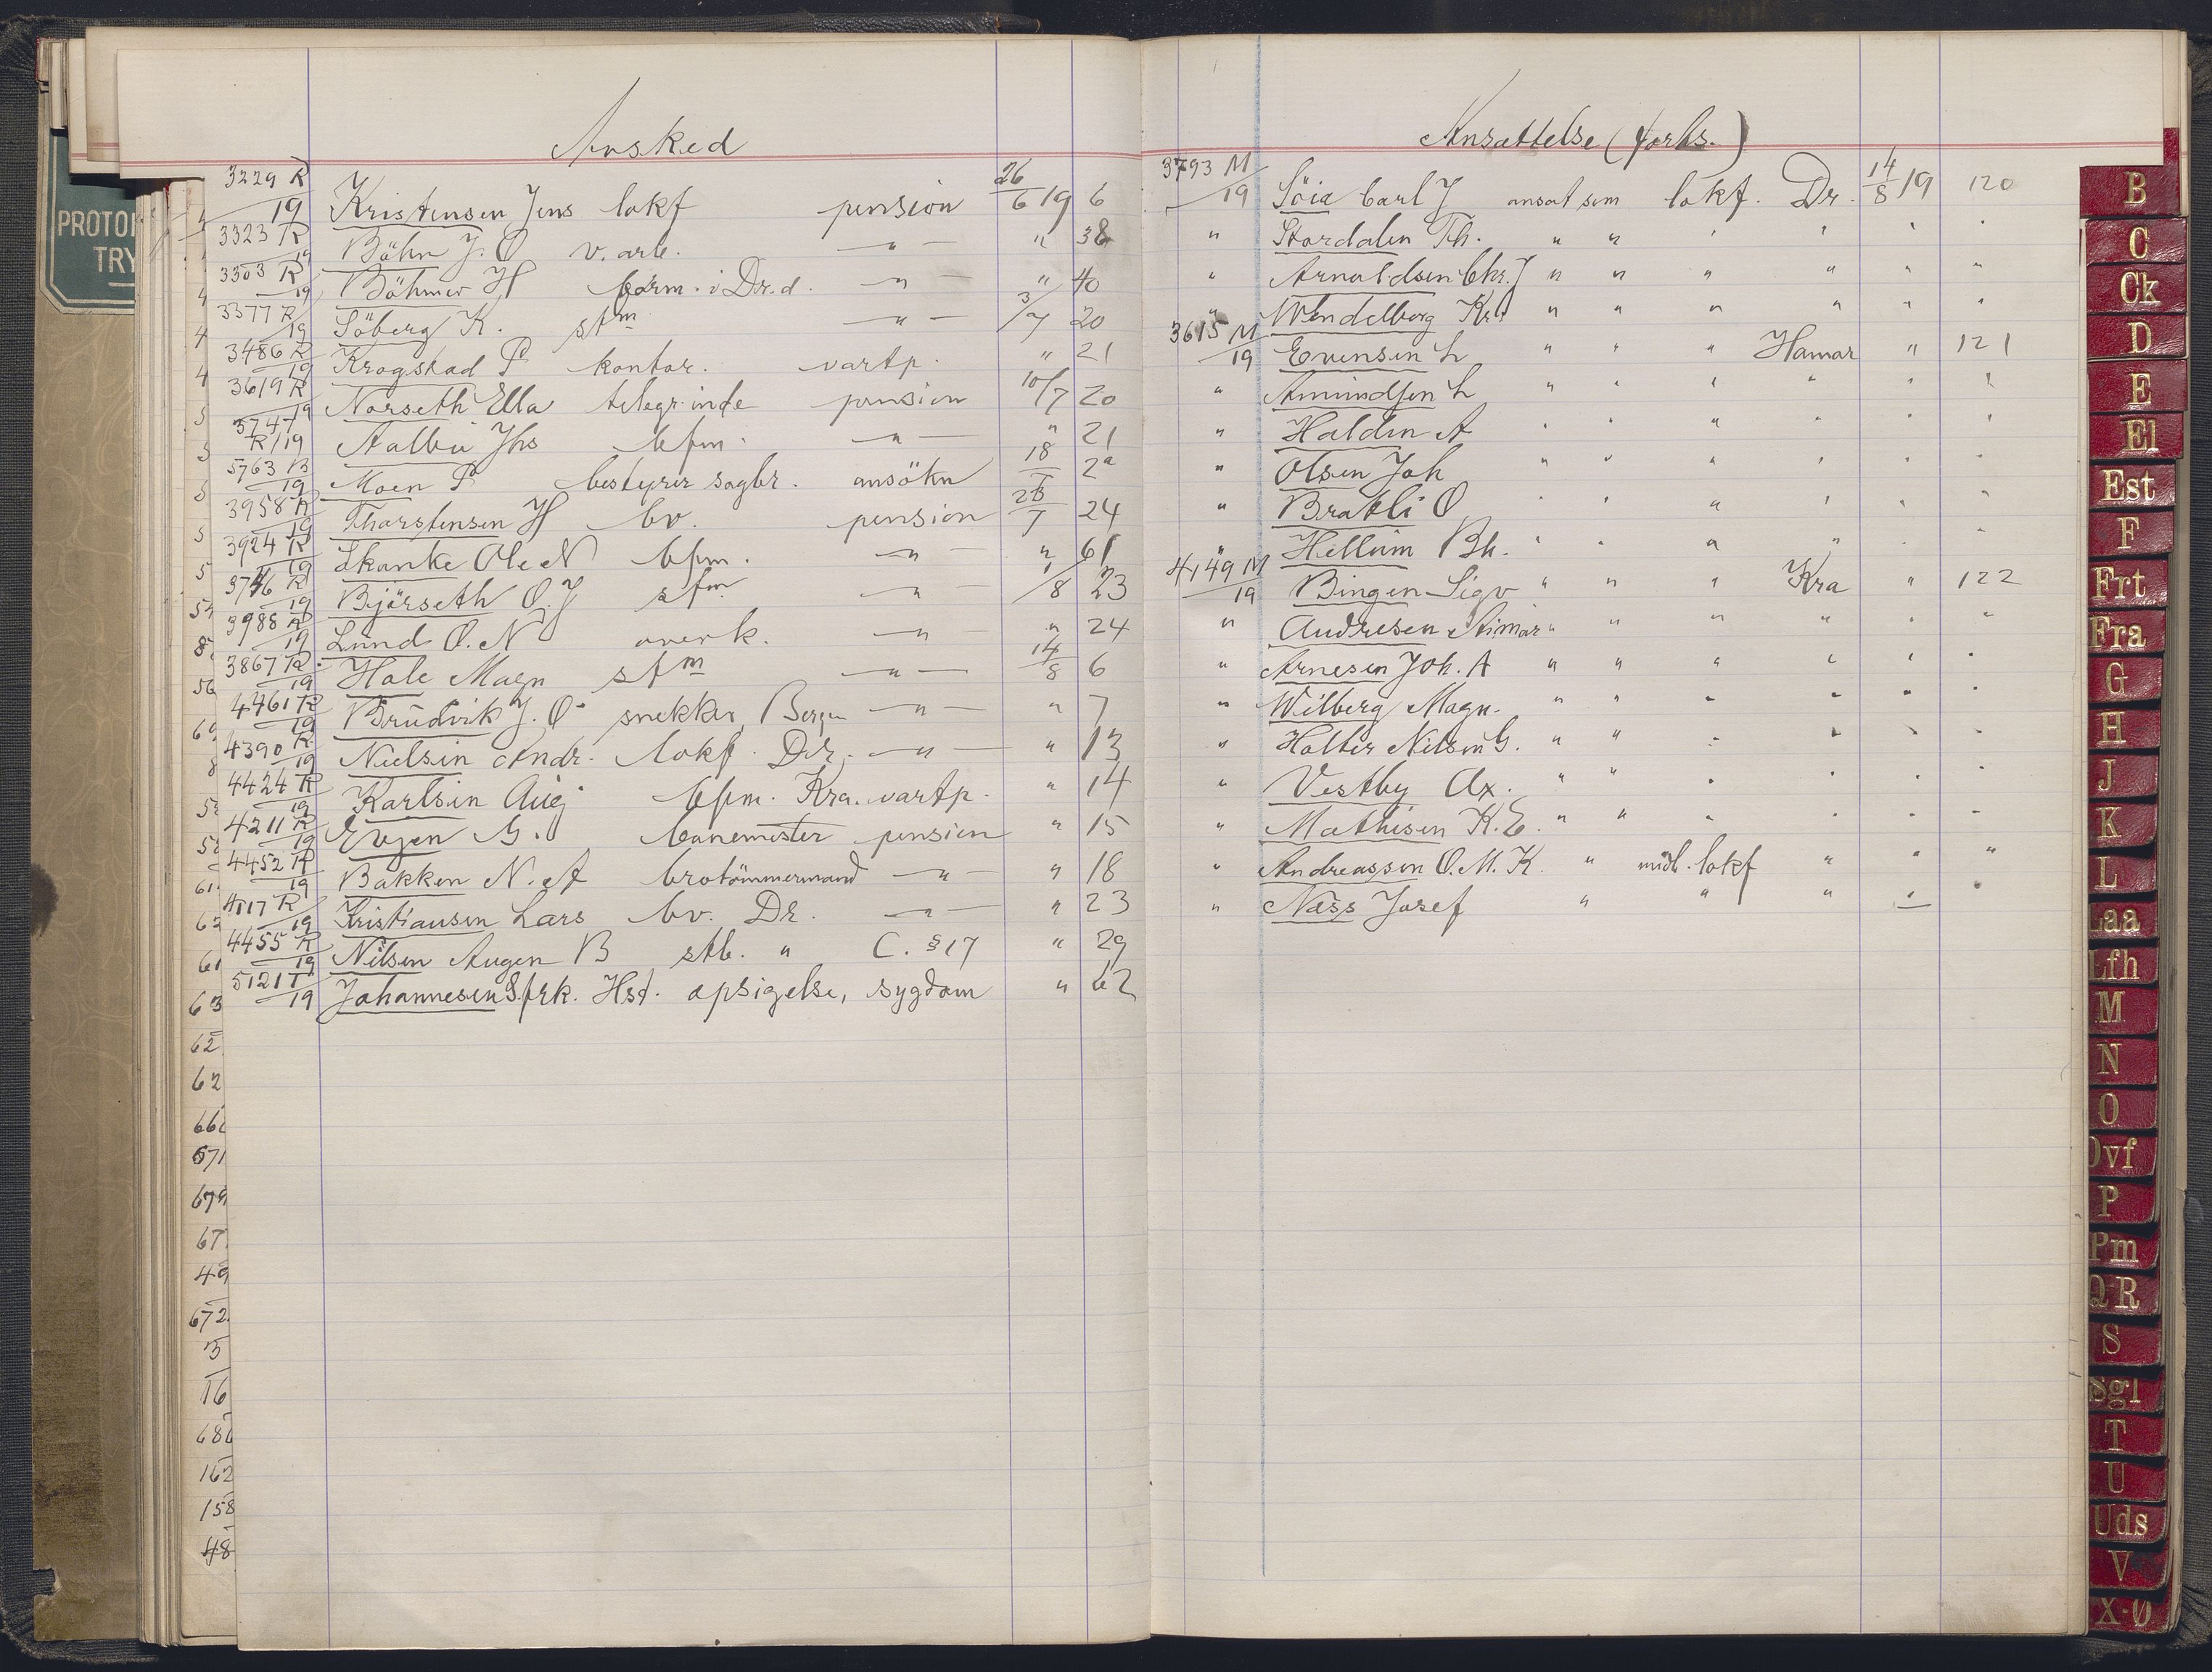 PROTO
TRY
Avsked
3229 R/19 Kristensen Jens lokf pension 26/6 19 6
3323 R/19 Böhn J. O v. arb. —"— " 38
3303 R/19 Böhmer H form. i Dr.d. —"— " 40
3377 R/19 Söberg K. stm —"— 3/7 20
3486 R/19 Krogstad P kontor. vartp. " 21
3619 R/19 Norseth Ella telegr.inde pension 10/7 20
3747 R/19 Aalbu Jhs bfm. —"— " 21
5763 B/19 Moen P bestyrer sagbr. ansökn 18/7 2a
3958 R/19 Thorstensen H bv. pension 25/7 24
3924 R/19 Skanke Ole N bfm. —"— " 61
3746 R/19 Bjørseth O. J sfm —"— 1/8 23
3988 R/19 Lund O. N overk. —"— " 24
3867 R/19 Hole Magn sfm —"— 14/8 6
4461 R/19 Brudvik J. O snekker, Bergen —"— " 7
4390 R/19 Nielsen Andr. lokf. Dr. —"— " 13
4424 R/19 Karlsen Aug bfm. Kra. vartp. " 14
4211 R/19 Evjen G. banemester pension " 15
4452 R/19 Bakken N. A brotömmermand —"— " 18
4117 R/19 Kristiansen Lars bv. Dr. —"— " 23
4455 R/19 Nilsen Augen B stb. " C. §17 " 29
5121 T/19 Johannesen S. frk. Hst. opsigelse, sygdom " 62
Ansættelse (forts.)
3793 M/19 Söia Carl J ansat som lokf. Dr. 14/8 19 120
" Stordalen Th. " " " " " "
" Arnoldsen Chr. J " " " " " "
" Wendelborg Kr. " " " " " "
3615 M/19 Evensen L " " " Hamar " 121
" Amundsen L " " " " " "
" Holden A " " " " " "
" Olsen Joh " " " " " "
" Bratli O " " " " " "
" Hellum Bh. " " " " " "
4149 M/19 Bingen Sigv " " " Kra " 122
" Andresen Aimar " " " " " "
" Arnesen Joh. A " " " " " "
" Wilberg Magn. " " " " " "
" Holter Nilsen G. " " " " " "
" Vestby Ax. " " " " " "
" Mathisen K. E. " " " " " "
" Andreassen O. M. K. " midl. lokf " " "
" Næss Josef " " " " "
B
C
Ck
D
E
El
Est
F
Frt
Fra
G
H
J
K
L
Laa
Lfh
M
N
O
Ovf
P
Pm
Q-R
S
Sgl
T
U
Uds
V
X-Ø